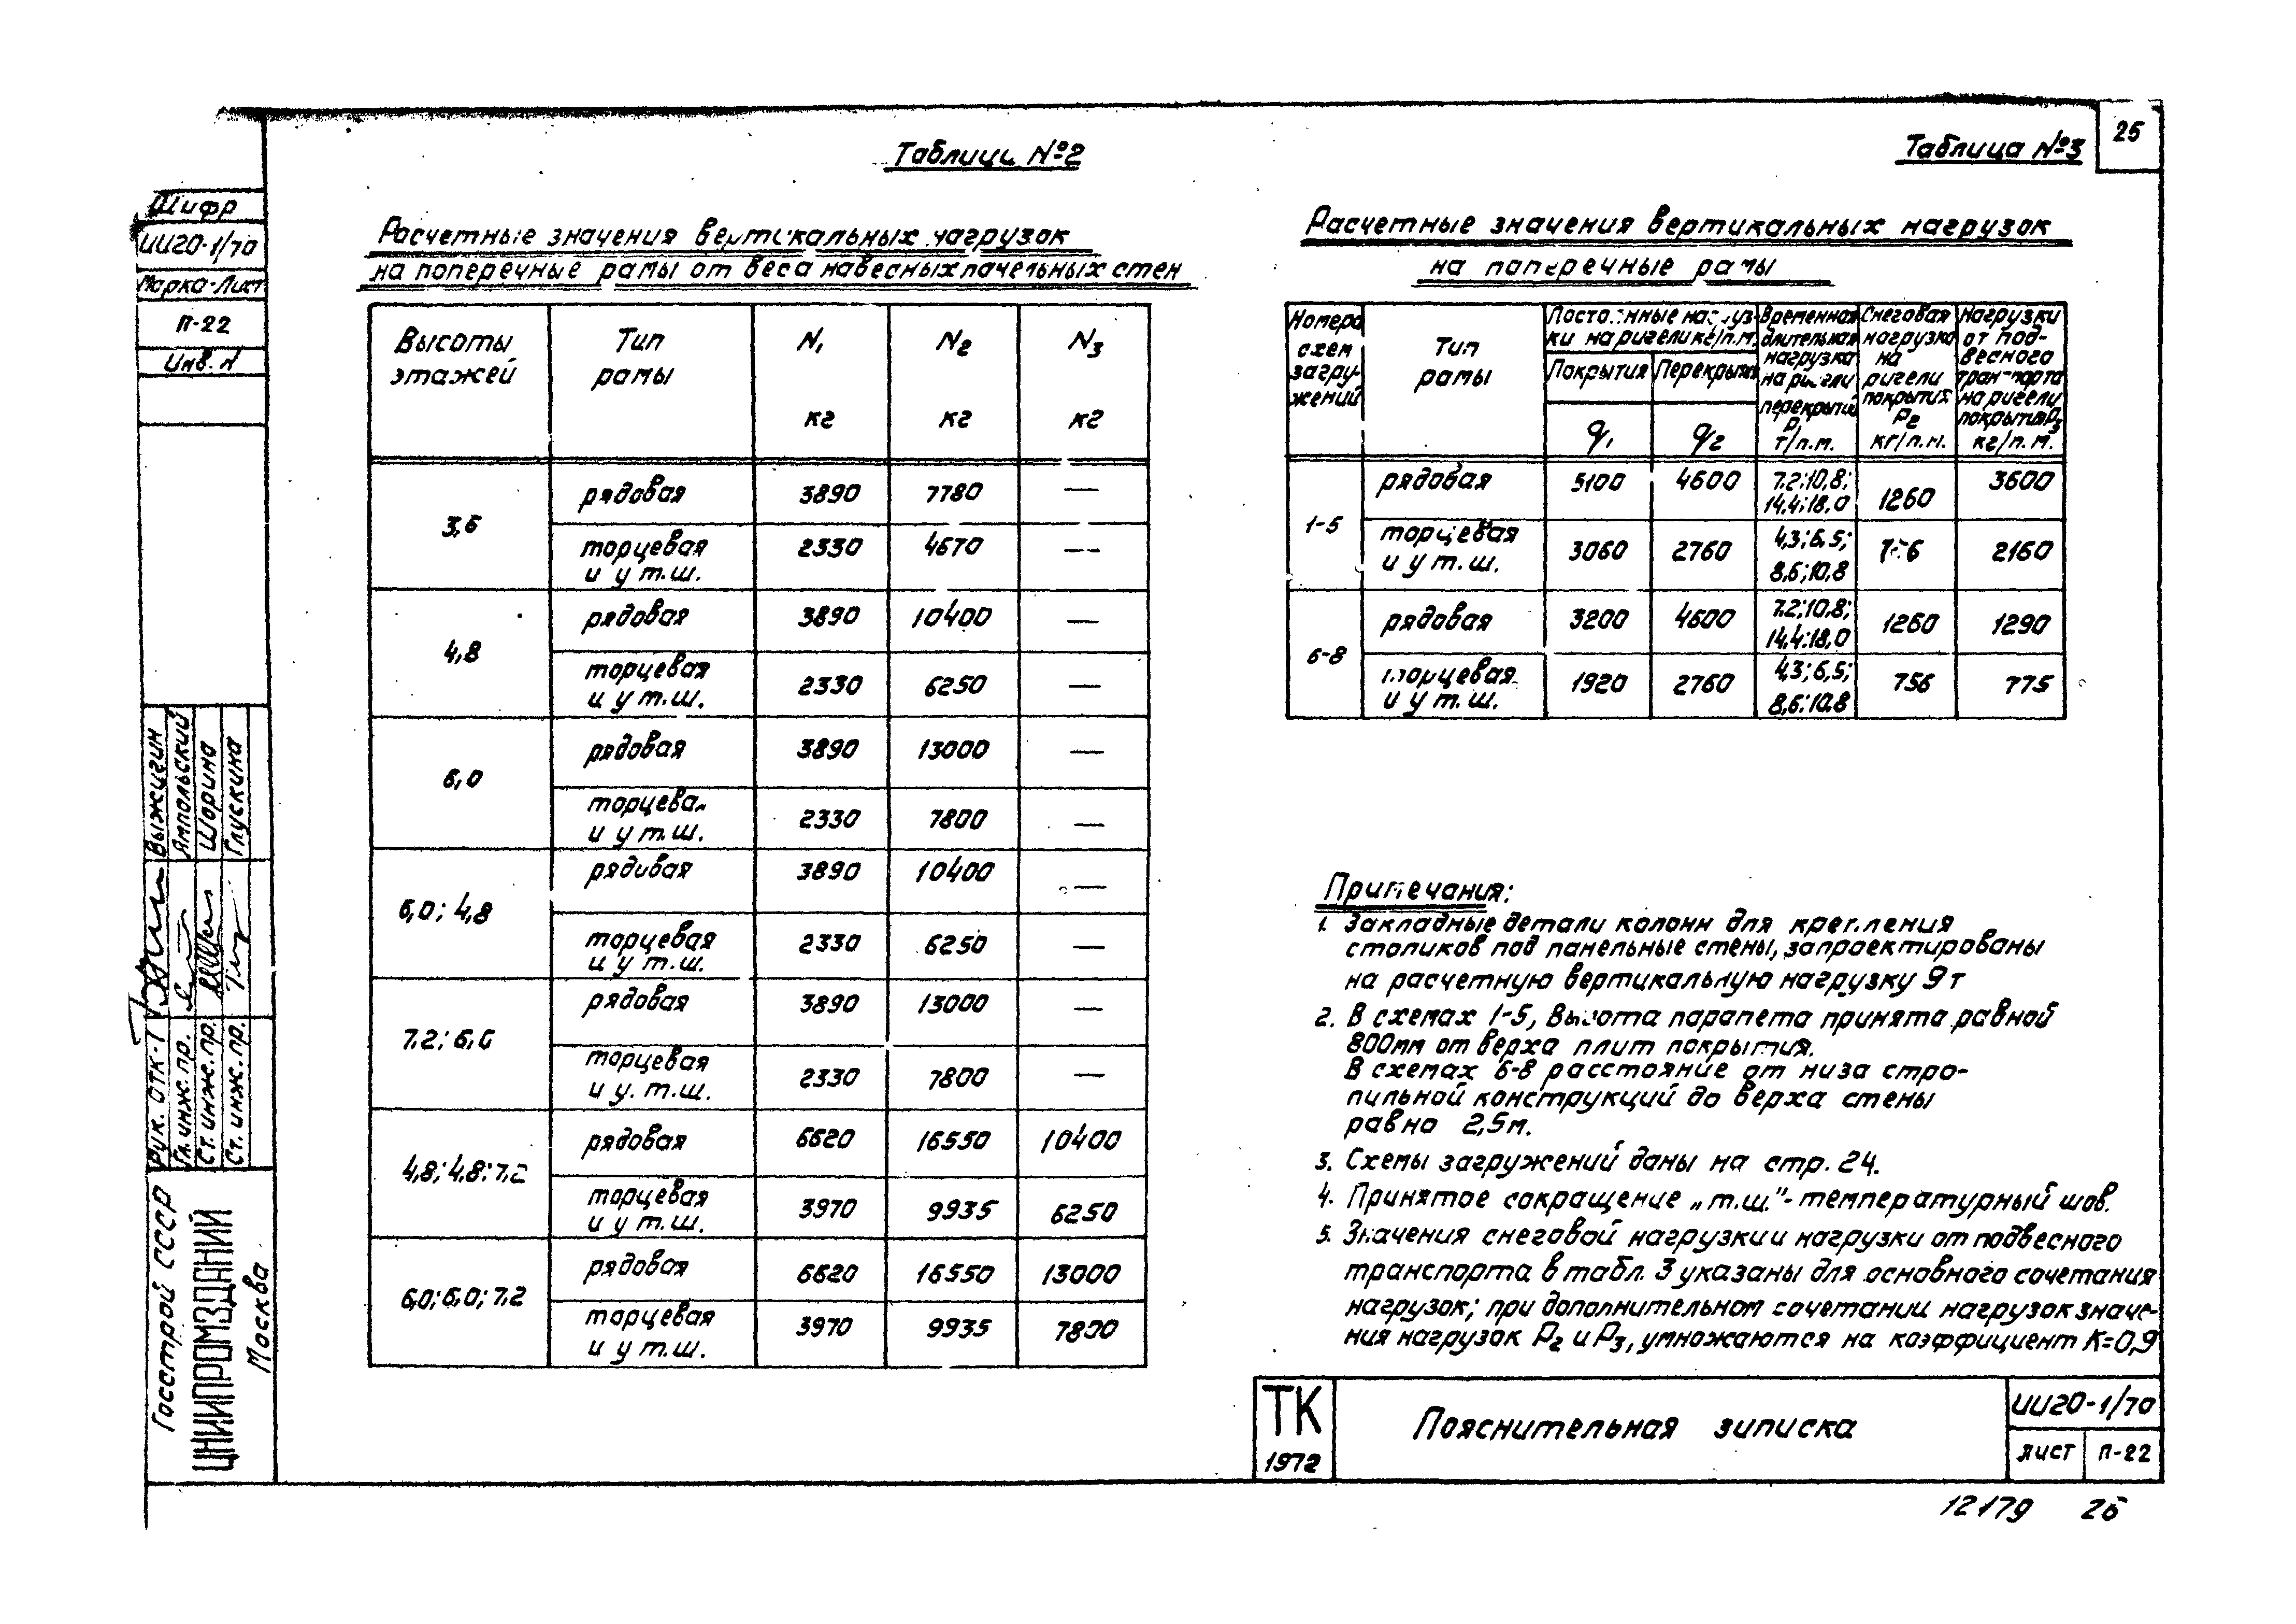 25
Таблица №2
Расчетные значения вертикальных нагрузок
на поперечные рамы от веса навесных панельных стен
Высоты этажей | Тип рамы | N₁ кг | N₂ кг | N₃ кг
3,6 | рядовая | 3890 | 7780 | —
торцевая и у т.ш. | 2330 | 4670 | —
4,8 | рядовая | 3890 | 10400 | —
торцевая и у т.ш. | 2330 | 6250 | —
6,0 | рядовая | 3890 | 13000 | —
торцевая и у т.ш. | 2330 | 7800 | —
6,0; 4,8 | рядовая | 3890 | 10400 | —
торцевая и у т.ш. | 2330 | 6250 | —
7,2; 6,0 | рядовая | 3890 | 13000 | —
торцевая и у. т.ш. | 2330 | 7800 | —
4,8; 4,8; 7,2 | рядовая | 6620 | 16550 | 10400
торцевая и у т.ш. | 3970 | 9935 | 6250
6,0; 6,0; 7,2 | рядовая | 6620 | 16550 | 13000
торцевая и у т.ш. | 3970 | 9935 | 7800
Таблица №3
Расчетные значения вертикальных нагрузок
на поперечные рамы
Номера схем загружений | Тип рамы | Постоянные нагрузки на ригели кг/п.м. | Временная длительная нагрузка на ригели перекрытий P₁ т/п.м. | Снеговая нагрузка на ригели покрытия P₂ кг/п.м. | Нагрузки от подвесного транспорта на ригели покрытия P₃ кг/п.м.
Покрытия q₁ | Перекрытия q₂
1-5 | рядовая | 5100 | 4600 | 7.2; 10,8; 14,4; 18,0 | 1260 | 3600
торцевая и у т.ш. | 3060 | 2760 | 4,3; 6.5; 8,6; 10,8 | 756 | 2160
6-8 | рядовая | 3200 | 4600 | 7.2; 10,8; 14,4; 18,0 | 1260 | 1290
торцевая и у т.ш. | 1920 | 2760 | 4,3; 6,5; 8,6; 10,8 | 756 | 775
Примечания:
1. Закладные детали колонн для крепления
столиков под панельные стены, запроектированы
на расчетную вертикальную нагрузку 9т
2. В схемах 1-5, Высота парапета принята равной
800мм от верха плит покрытия.
В схемах 6-8 расстояние от низа стро-
пильной конструкций до верха стены
равно 2,5м.
3. Схемы загружений даны на стр. 24.
4. Принятое сокращение „т.ш."- температурный шов.
5. Значения снеговой нагрузки и нагрузки от подвесного
транспорта в табл. 3 указаны для основного сочетания
нагрузок; при дополнительном сочетании нагрузок значе-
ния нагрузок P₂ и P₃, умножаются на коэффициент К=0,9
ТК
1972
Пояснительная записка
ИИ20-1/70
лист П-22
12179 26
Шифр
ИИ20-1/70
Марка-Лист
П-22
Инв. N
Рук. ОТК-1 Выжигин
Гл. инж. пр. Ямпольский
Ст. инж. пр. Шорина
Ст. инж. пр. Глускина
Госстрой СССР
ЦНИИПРОМЗДАНИЙ
Москва